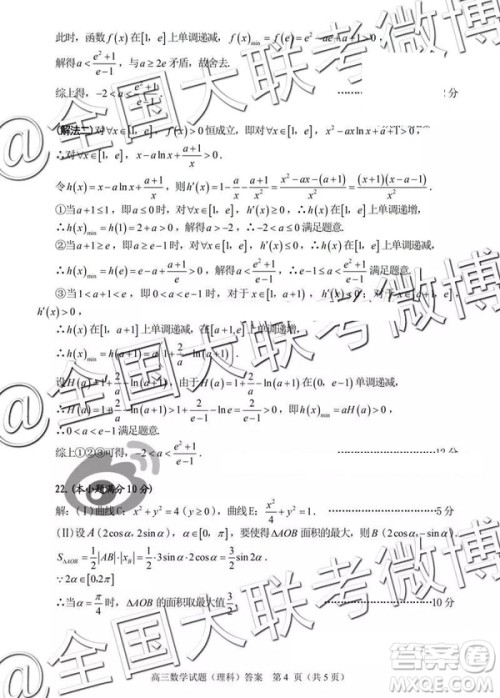 此时，函数 f(x) 在[1，e]上单调递减，f(x)min = f(e) = e² − ae + a + 1 > 0，
解得 a < (e²+1)/(e−1)，与 a ≥ 2e 矛盾，故舍去.
综上得，−2 < a < (e²+1)/(e−1). ………… 2分
(解法二) 对∀x∈[1，e]，f(x) > 0 恒成立，即对∀x∈[1，e]，x² − ax ln x + a + 1 > 0，
∴对∀x∈[1，e]，x − a ln x + (a+1)/x > 0.
令 h(x) = x − a ln x + (a+1)/x，则 h'(x) = 1 − a/x − (a+1)/x² = (x² − ax − (a+1))/x² = (x+1)(x−a−1)/x².
①当 a+1 ≤ 1，即 a ≤ 0 时，对∀x∈[1，e]，h'(x) ≥ 0，∴h(x)在[1，e]上单调递增，
∴h(x)min = h(1) = 2 + a > 0，解得 a > −2，∴−2 < a ≤ 0 满足题意.
②当 a+1 ≥ e，即 a ≥ e−1 时，对∀x∈[1，e]，h'(x) ≤ 0，∴h(x)在[1，e]上单调递减，
∴h(x)min = h(e) = e − a + (a+1)/e > 0，解得 a < (e²+1)/(e−1)，∴e−1 ≤ a < (e²+1)/(e−1) 满足题意.
③当 1 < a+1 < e，即 0 < a < e−1 时，对于 x∈[1，a+1]，h'(x) < 0；对于 x∈[a+1，e]，
h'(x) > 0，
∴h(x)在[1，a+1]上单调递减，在[a+1,e]上单调递增，
∴h(x)min = h(a+1) = a[1 + 2/a − ln(a+1)].
设 H(a) = 1 + 2/a − ln(a+1)，由于 H(a) = 1 + 2/a − ln(a+1) 在(0，e−1)单调递减，
∴H(a) = 1 + 2/a − ln(a+1) > 1 + 2/(e−1) − ln e = 2/(e−1) > 0，即 h(x)min = aH(a) > 0，
∴0 < a < e−1 满足题意.
综上①②③可得，−2 < a < (e²+1)/(e−1). ………… 12分
22.(本小题满分10分)
解：(Ⅰ)曲线C₁：x² + y² = 4 (y ≥ 0)，曲线C₂：x²/4 + y² = 1. ………… 5分
(Ⅱ)设 A(2cosα,2sinα)，α∈[0，π]，要使得△AOB 面积的最大，则 B(2cosα，−sinα).
S△AOB = 1/2|AB|·|xB| = 1/2·3sinα·2cosα = 3/2 sin2α.
∵2α∈[0,2π]
∴当 α = π/4 时，△AOB 的面积取最大值 3/2. ………… 10分
高三数学试题（理科）答案 第4页（共5页）
@全国大联考微博
@全国大联考微博
@全国大联考微博
答案圈